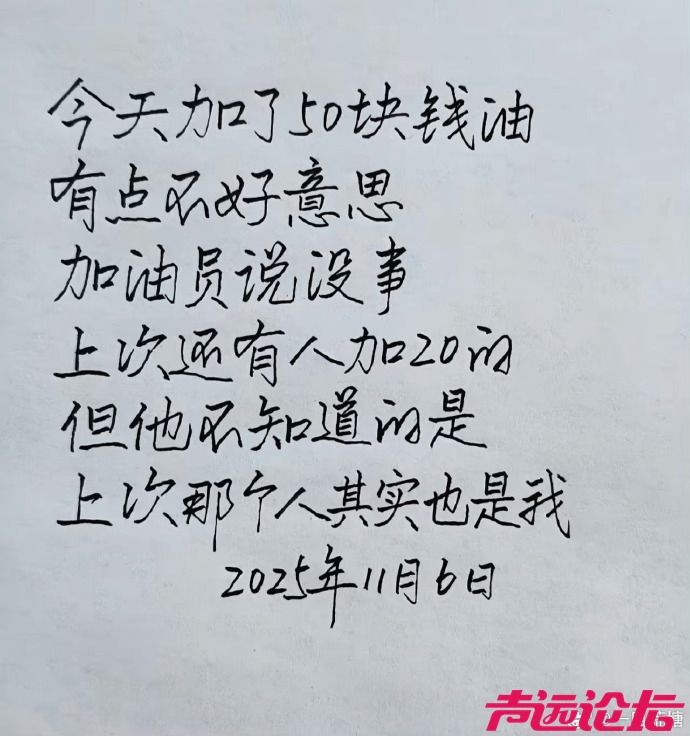 今天加了50块钱油
有点不好意思
加油员说没事
上次还有人加20的
但他不知道的是
上次那个人其实也是我
2025年11月6日
声远论坛